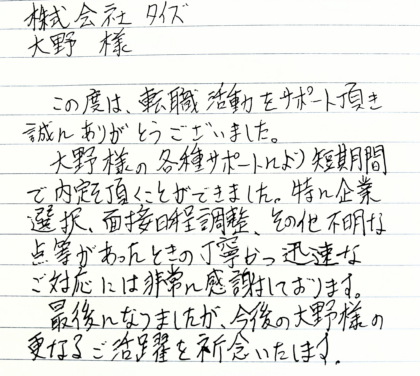 株式会社 タイズ
大野 様
この度は、転職活動をサポート頂き
誠にありがとうございました。
大野様の各種サポートにより短期間
で内定を頂くことができました。特に企業
選択、面接日程調整、その他不明な
点等があったときの丁寧かつ迅速な
ご対応には非常に感謝しております。
最後になりましたが、今後の大野様の
更なるご活躍を祈念いたします。